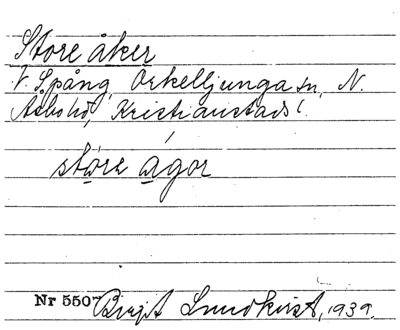 Store åker
V. Spång, Örkelljunga sn, N.
Åsbo hd, Kristianstads l.
støre ágor
Nr 5507 Birgit Lundkvist, 1939.